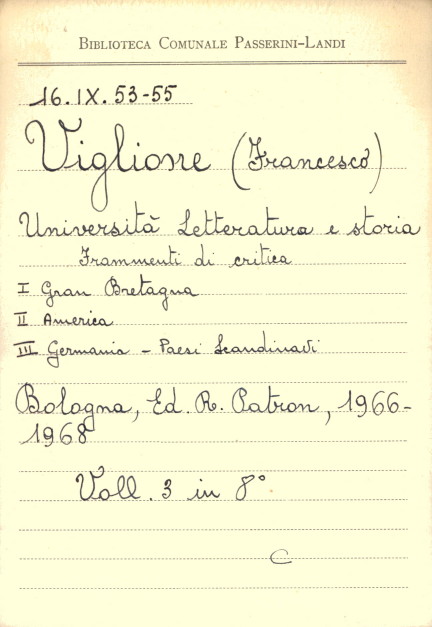 BIBLIOTECA COMUNALE PASSERINI-LANDI
16.IX.53-55
Viglione (Francesco)
Università Letteratura e storia
Frammenti di critica
I Gran Bretagna
II America
III Germania - Paesi Scandinavi
Bologna, Ed. R. Patron, 1966-
1968
Voll. 3 in 8°
C